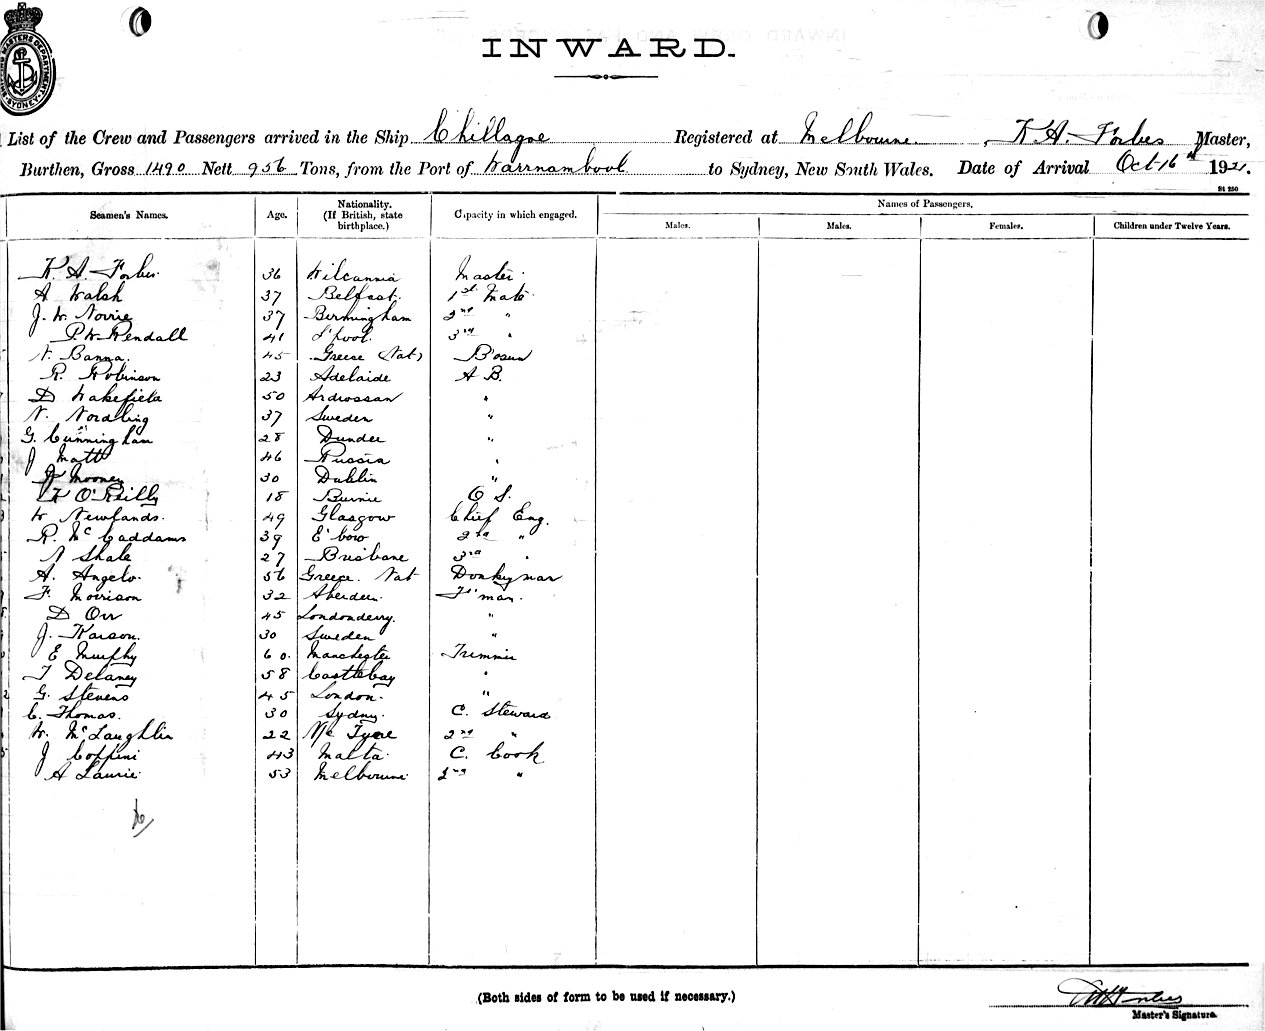 INWARD.
List of the Crew and Passengers arrived in the Ship Chillagoe Registered at Melbourne, K. A. Forbes Master,
Burthen, Gross 1490 Nett 956 Tons, from the Port of Warrnambool to Sydney, New South Wales. Date of Arrival Oct 16th 1921.
St 250
Seamen's Names. Age. Nationality. (If British, state birthplace.) Capacity in which engaged. Names of Passengers.
Males. Males. Females. Children under Twelve Years.
K. A. Forbes 36 Wilcannia Master
A Walsh 37 Belfast 1st Mate
J. W. Norrie 37 Birmingham 2nd "
P. W. Kendall 41 L'pool 3rd "
N. Banna. 45 Greece (Nat) B'osun
R. Robinson 23 Adelaide A B.
D Wakefield 50 Ardrossan "
N. Nordling 37 Sweden "
G. Cunningham 28 Dundee "
J Matt 46 Russia "
Mooney 30 Dublin "
K O'Reilly 18 Burnie O S.
W Newlands. 49 Glasgow Chief Eng.
R. Mc Caddams 39 E'bow 2nd "
A Shale 27 Brisbane 3rd "
A. Angelo. 56 Greece. Nat Donkeyman
F. Morrison 32 Aberdeen F'man.
D Orr 45 Londonderry. "
J. Karson. 30 Sweden "
E Murphy 60. Manchester Trimmer
T Delaney 58 Castlebay "
G. Stevens 45 London. "
C. Thomas. 30 Sydney. C. Steward
W. McLaughlin 22 N/c Tyne 2nd "
J Coppini 43 Malta C. Cook
A Laurie 53 Melbourne 2nd "
(Both sides of form to be used if necessary.)
Master's Signature.